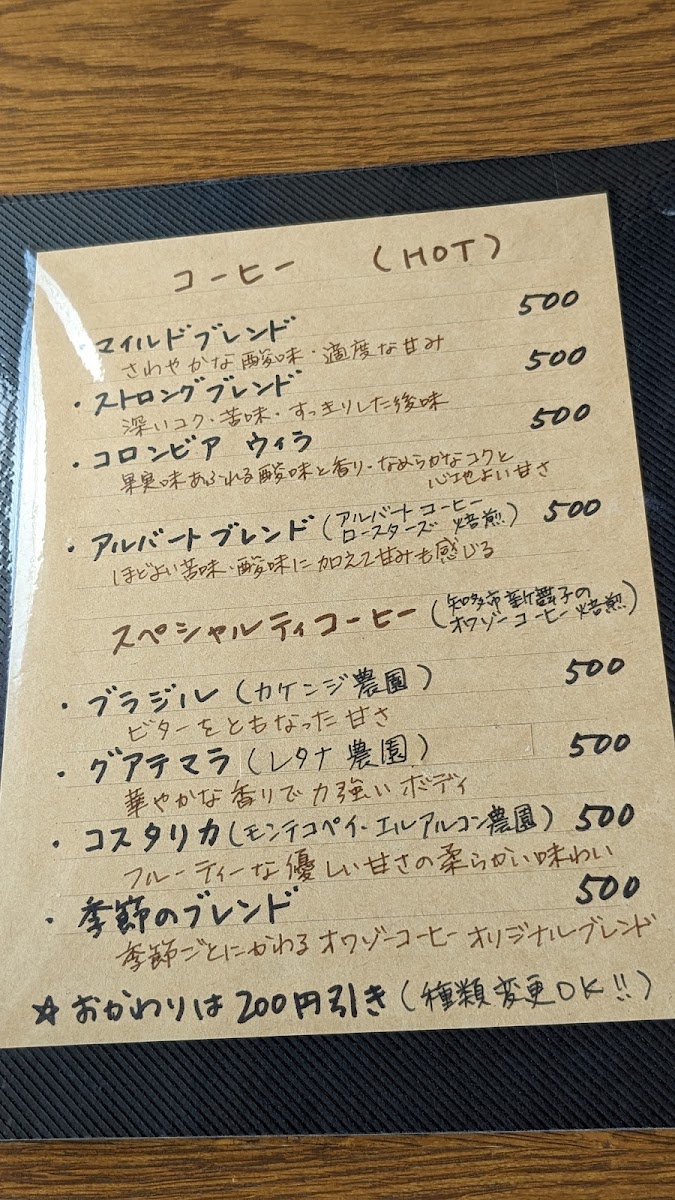 コーヒー (HOT)
・マイルドブレンド 500
さわやかな酸味・適度な甘み
・ストロングブレンド 500
深いコク・苦味・すっきりした後味
・コロンビア ウィラ 500
果実味あふれる酸味と香り・なめらかなコクと
心地よい甘さ
・アルバートブレンド(アルバートコーヒー
ロースターズ 焙煎) 500
ほどよい苦味・酸味に加えて甘みも感じる
スペシャルティコーヒー(知多市新舞子の
オワゾーコーヒー焙煎)
・ブラジル(カケンジ農園) 500
ビターをともなった甘さ
・グアテマラ(レタナ農園) 500
華やかな香りで力強いボディ
・コスタリカ(モンテコペイ・エルアルコン農園) 500
フルーティーな優しい甘さの柔らかい味わい
・季節のブレンド 500
季節ごとにかわるオワゾーコーヒーオリジナルブレンド
☆おかわりは200円引き(種類変更OK!!)